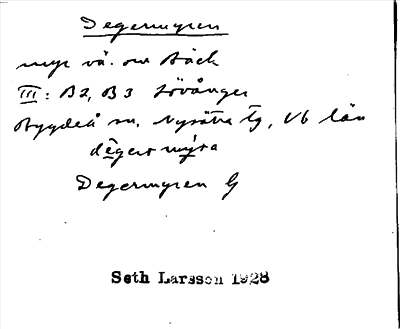 Degermyren
myr vä. om Bäck
III: B2, B3 Lövånger
Bygdeå sn, Nysätra tg, Vb län
dègermýra
Degermyren G
Seth Larsson 1928